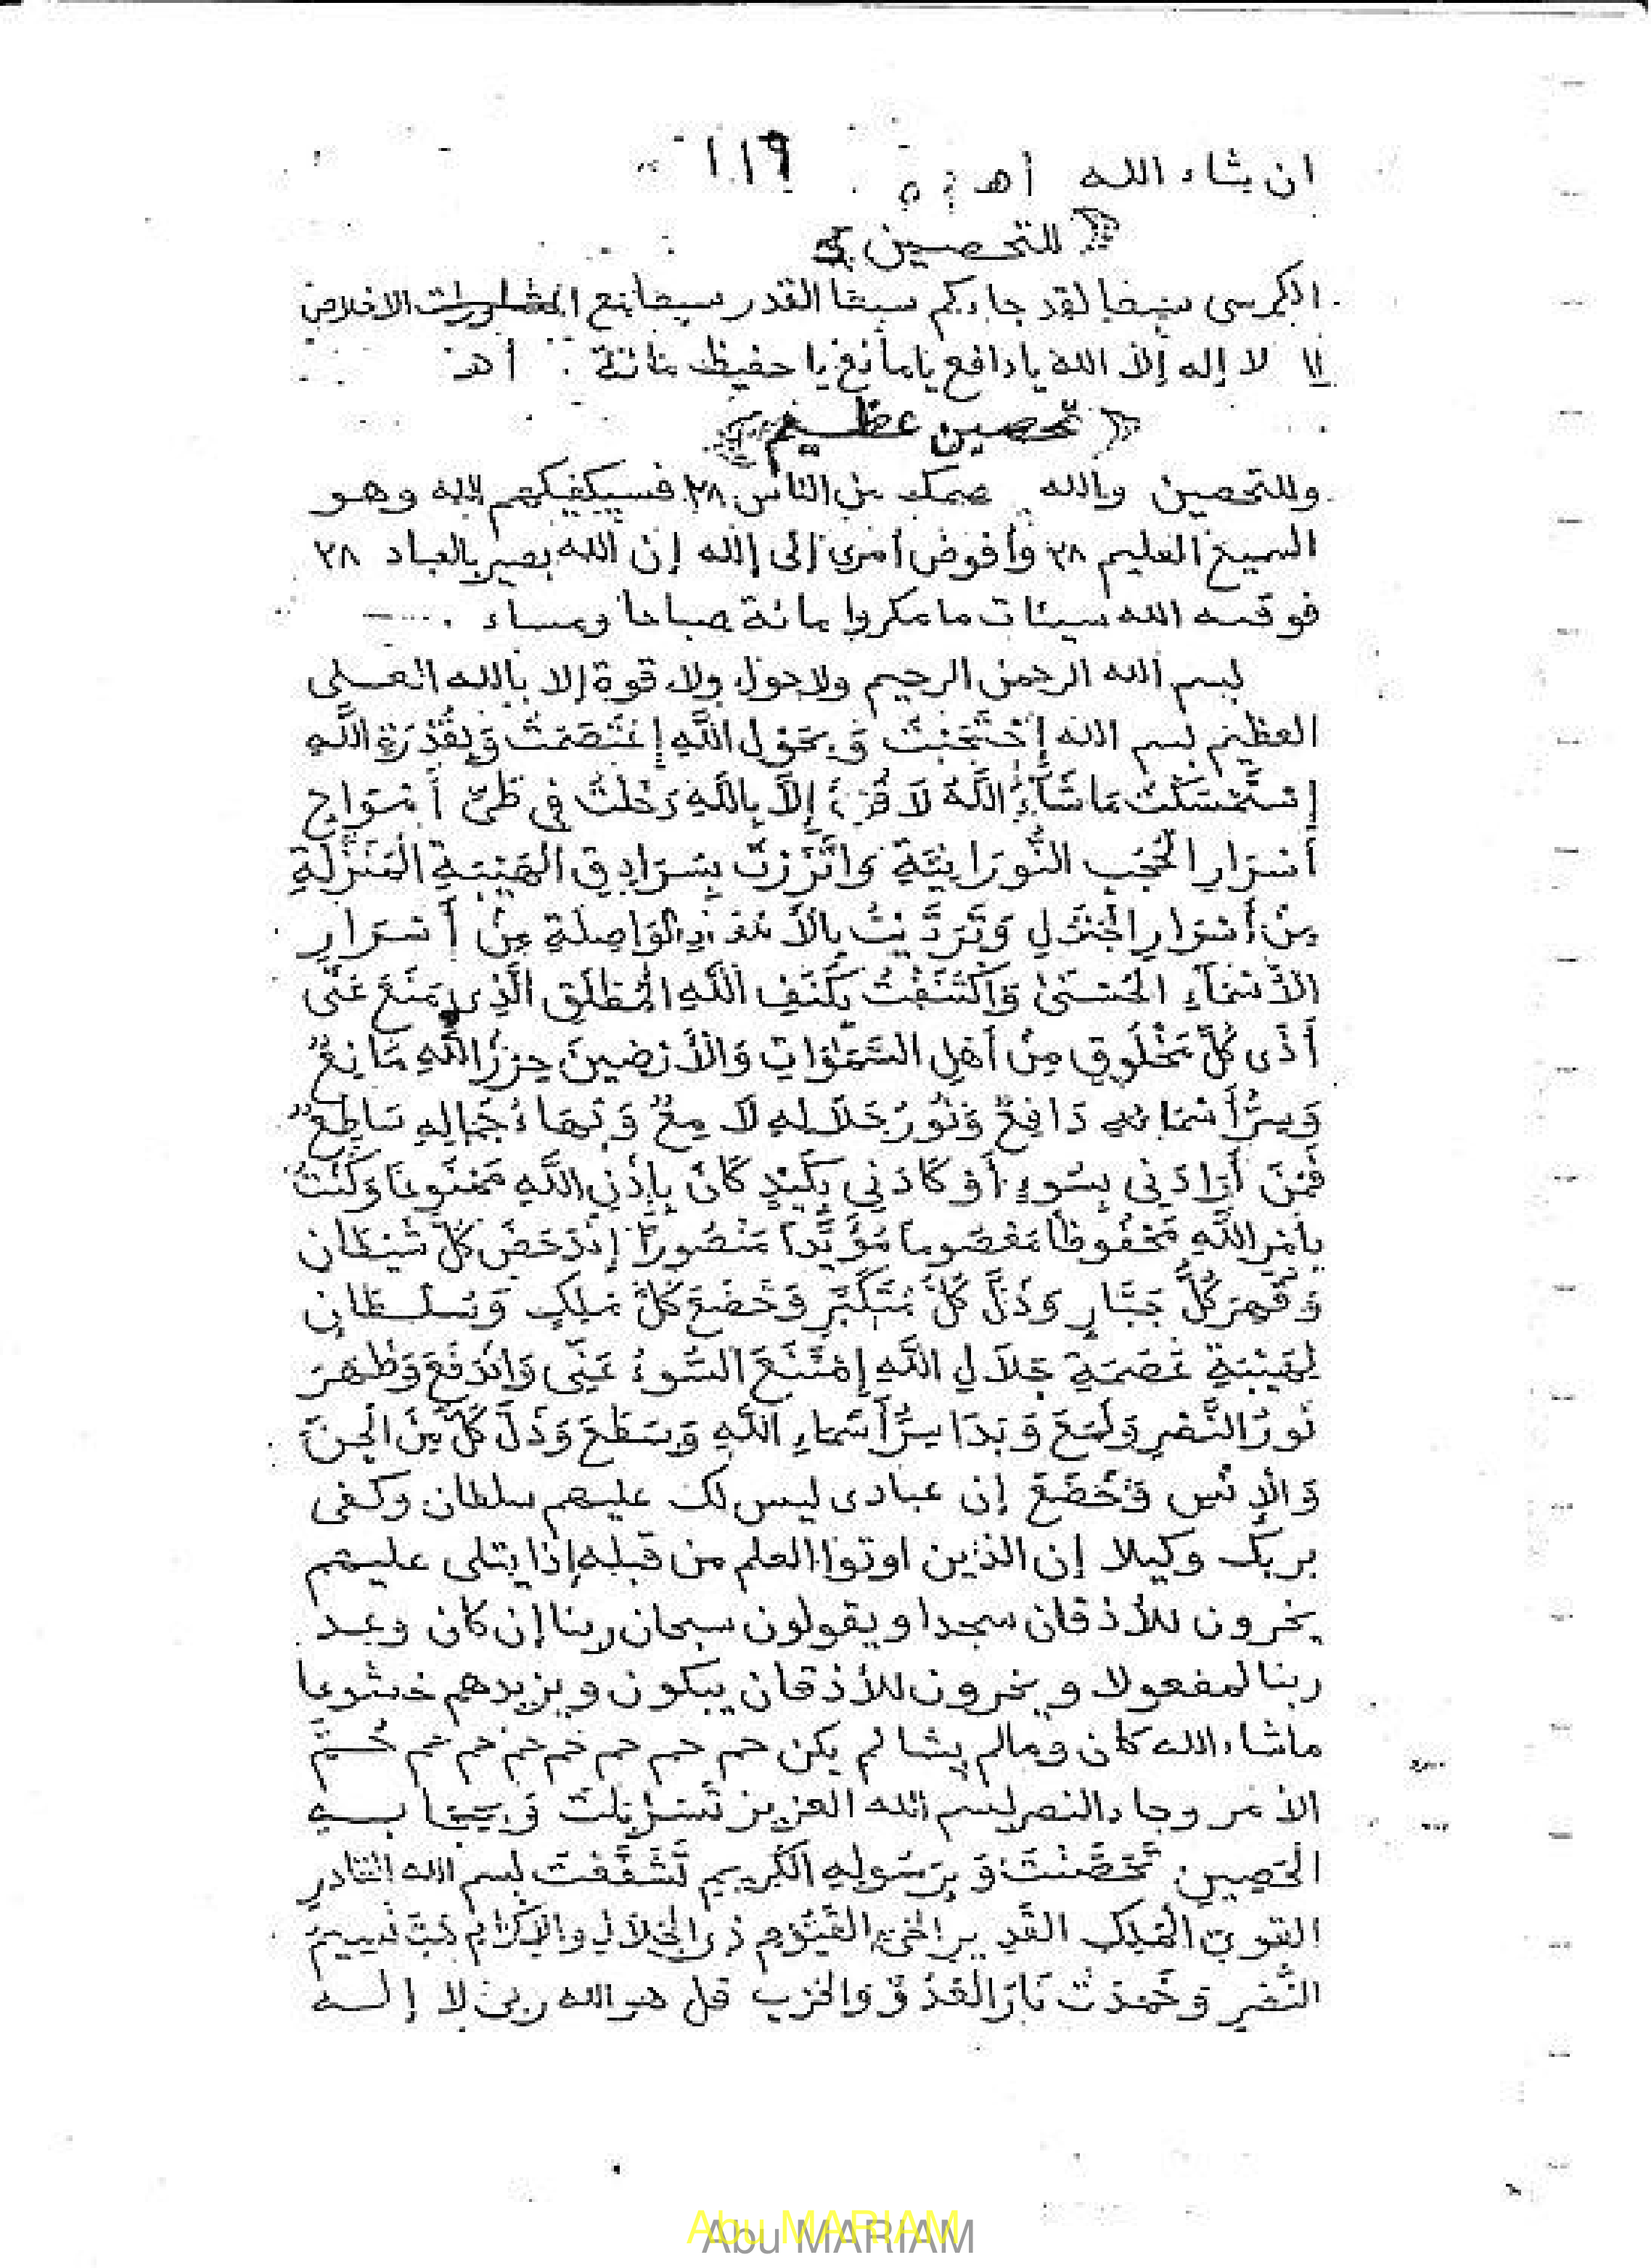 ان شاء الله أهـ ١١٩
﴿ للتحصين ﴾
الكرسى سبعا لقد جاءكم سبعا القدر سبعا مع الاخلاص
لا إله إلا الله يا دافع يا مانع يا حفيظ مائة أهـ
﴿ تحصين عظيم ﴾
وللتحصين والله يعصمك من الناس ٢٨ فسيكفيكهم الله وهو
السميع العليم ٢٨ وأفوض أمرى إلى الله إن الله بصير بالعباد ٢٨
فوقـه الله سيئات ما مكروا مائة صباحا ومساء
بسم الله الرحمن الرحيم ولا حول ولا قوة إلا بالله العـلى
العظيم بسم الله إِحْتَجَبْتُ وَبِحَوْلِ اللَّهِ إِعْتَصَمْتُ وَبِقُدْرَةِ اللَّهِ
إِسْتَمْسَكْتُ مَا شَاءَ اللَّهُ لَا قُوَّةَ إِلَّا بِاللَّهِ دَخَلْتُ فِي طَيِّ أَمْوَاجِ
أَسْرَارِ الحُجُبِ النُّورَانِيَّةِ وَاتَّزَرْتُ بِسَرَادِقِ الْهَيْبَةِ الْمَنَزَّلَةِ
مِنْ أَسْرَارِ وَتَرَدَّيْتُ الوَاصِلَةِ مِنْ أَسْرَارِ
الأَسْمَاءِ الحُسْنَىٰ وَاكْتَنَفْتُ بِكَنَفِ اللَّهِ المُطْلَقِ الَّذِى يَمْنَعُ عَنِّى
أَذَى كُلِّ مَخْلُوقٍ مِنْ أَهْلِ السَّمَوَاتِ وَالأَرْضِينَ حِرْزُ اللَّهِ مَانِعٌ
وَسِرُّ أَسْمَائِهِ دَافِعٌ وَنُورُ جَلَالِهِ لَامِعٌ وَبَهَاءُ جَمَالِهِ سَاطِعٌ
فَمَنْ أَرَادَنِى بِسُوءٍ أَوْ كَادَنِى بِكَيْدٍ كَانَ بِإِذْنِ اللَّهِ مَمْنُوعًا وَكُنْتُ
بِأَمْرِ اللَّهِ مَحْفُوظًا مَعْصُومًا مُؤَيَّدًا مَنْصُورًا إِنْدَحَضَ كُلُّ شَيْطَانٍ
وَقُهِرَ كُلُّ جَبَّارٍ وَذَلَّ كُلُّ مُتَكَبِّرٍ وَخَضَعَ كُلُّ مَلِكٍ وَسُلْطَانٍ
لِهَيْبَةِ عَصَمَةِ جَلَالِ اللَّهِ إِمْتَنَعَ السُّوءُ عَنِّى وَانْدَفَعَ وَظَهَرَ
نُورُ النَّصْرِ وَلَمَعَ وَبَدَا سِرُّ أَسْمَاءِ اللَّهِ وَسَطَعَ وَذَلَّ كُلٌّ مِّنَ الْجِنِّ
وَالإِنْسِ وَخَضَعَ إن عبادى ليس لك عليهم سلطان وكفى
بربك وكيلا إن الذين اوتوا العلم من قبله إذا يتلى عليهم
يخرون للأذقان سجدا ويقولون سبحان ربنا إن كان وعـد
ربنا لمفعولا ويخرون للأذقان يبكون ويزيدهم خشوعا
ماشاء الله كان ومالم يشا لم يكن حم حم حم حم حم حم حم حُـمَّ
الأمر وجاء النصر بسم الله العزيز تَسَرْبَلْتُ وَبِحِجَابِـهِ
الحَصِينِ تَحَصَّنْتُ وَبِرَسُولِهِ الْكَرِيمِ تَشَفَّعْتُ بسم الله القادر
القوىّ المَلِكِ القَدِيرِ الحَىِّ القَيُّومِ ذى الجَلَالِ والإِكْرَامِ هَبَّ نَسِيمُ
النَّصْرِ وَخَمَدَتْ نَارُ الْعَدُوِّ وَالحَرْبِ قل هو الله ربى لا إلـه
Abu MARIAM
Abu MARIAM